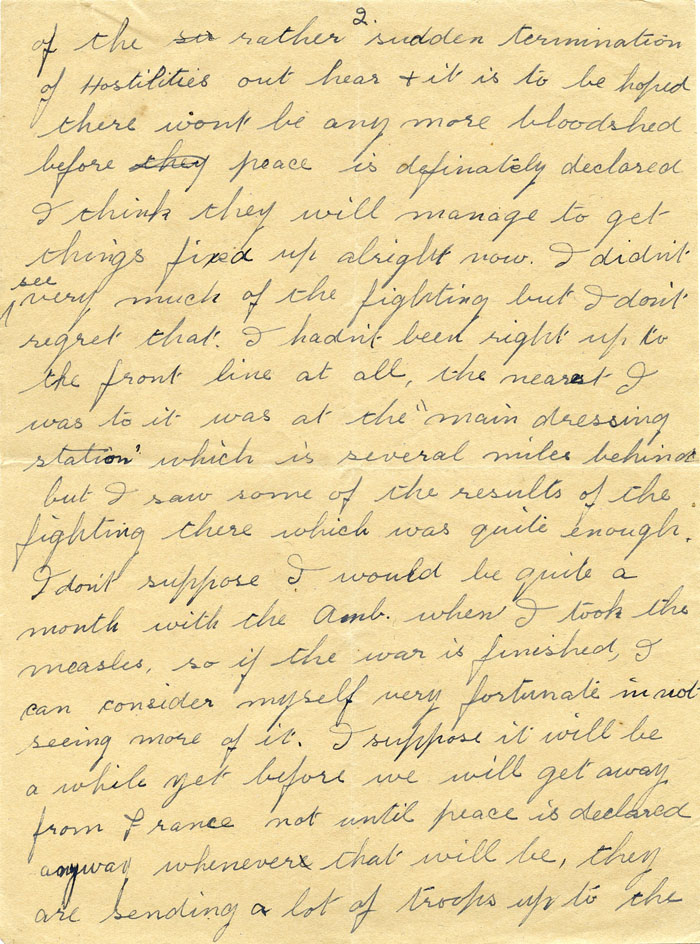 2.
of the su rather sudden termination
of Hostilities out hear + it is to be hoped
there wont be any more bloodshed
before they peace is definately declared
I think they will manage to get
things fixed up alright now. I didn't
see
very much of the fighting but I don't
regret that. I hadn't been right up to
the front line at all, the nearest I
was to it was at the "main dressing
station" which is several miles behind
but I saw some of the results of the
fighting there which was quite enough.
I don't suppose I would be quite a
month with the Amb. when I took the
measles, so if the war is finished, I
can consider myself very fortunate in not
seeing more of it. I suppose it will be
a while yet before we will get away
from France not until peace is declared
anyway whenever that will be, they
are sending a lot of troops up to the